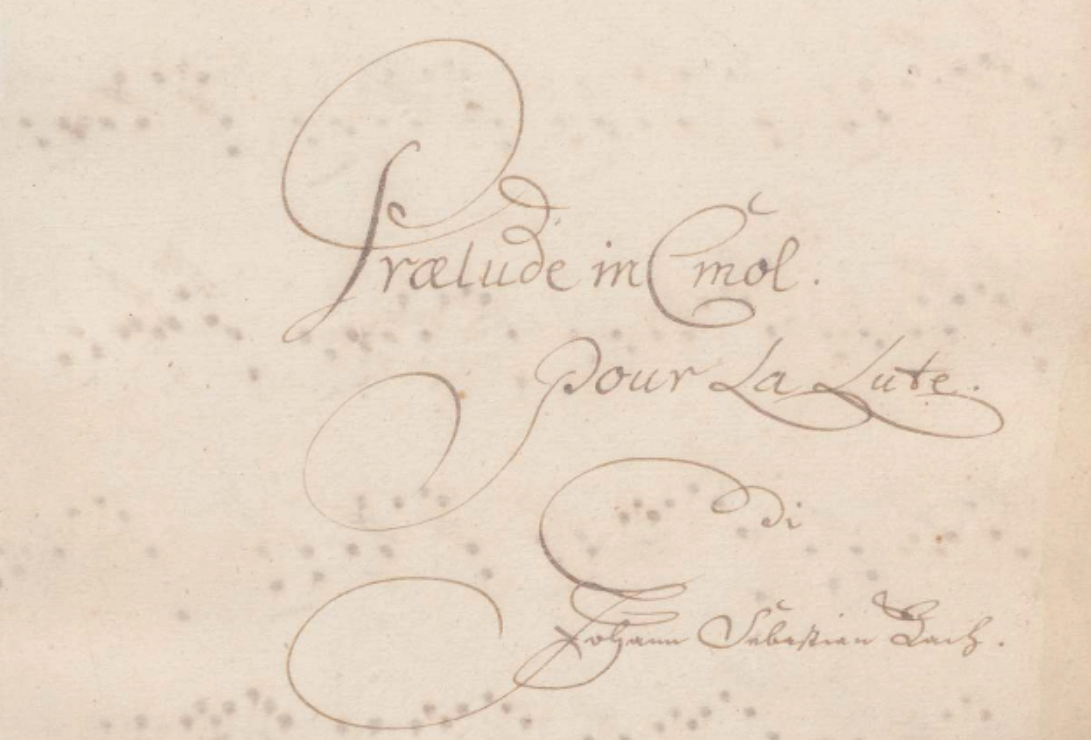 Prælude in C mol.
pour La Lute.
di
Johann Sebastian Bach.